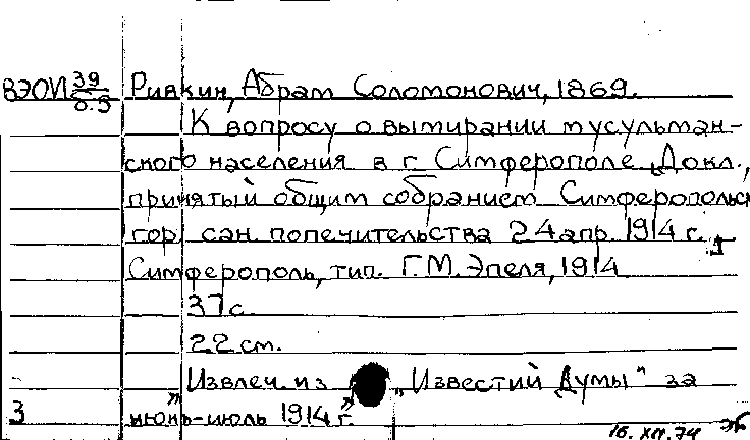 ВЭОИ 39/б.9 Ривкин, Абрам Соломонович, 1869.
К вопросу о вымирании мусульман-
ского населения в г. Симферополе. [Докл.,
принятый общим собранием Симферопольск.
гор. сан. попечительства 24 апр. 1914 г.]
Симферополь, тип. Г.М. Эпеля, 1914
37 с.
22 см.
Извлеч. из „Известий Думы" за
3 июнь-июль 1914 г.
16.XII.74